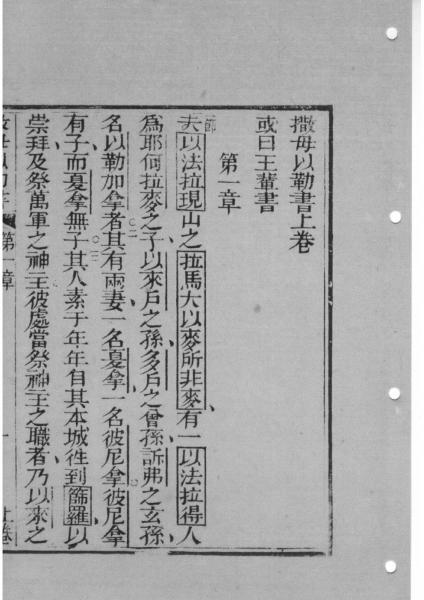 撒母以勒書上卷
或曰王輩書
第一章
夫以法拉現山之拉馬大以麥所非麥有一以法拉得人
為耶何拉麥之子以來戶之孫多戶之曾孫訴弗之玄孫
名以勒加拿者其有兩妻一名夏拿一名彼尼拿彼尼拿
有子而夏拿無子其人素于年年自其本城徃到篩羅以
崇拜及祭萬軍之神主彼處當祭神主之職者乃以來之
第一章